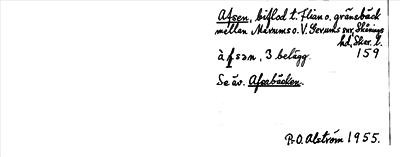 Afsen, biflod t. Flian o. gränsbäck
mellan Marums o. V. Gerums snr, Skånings
hd, Skar. l.
àfsən, 3 belägg. 159
Se äv. Afsabäcken.
P. O. Alström 1955.